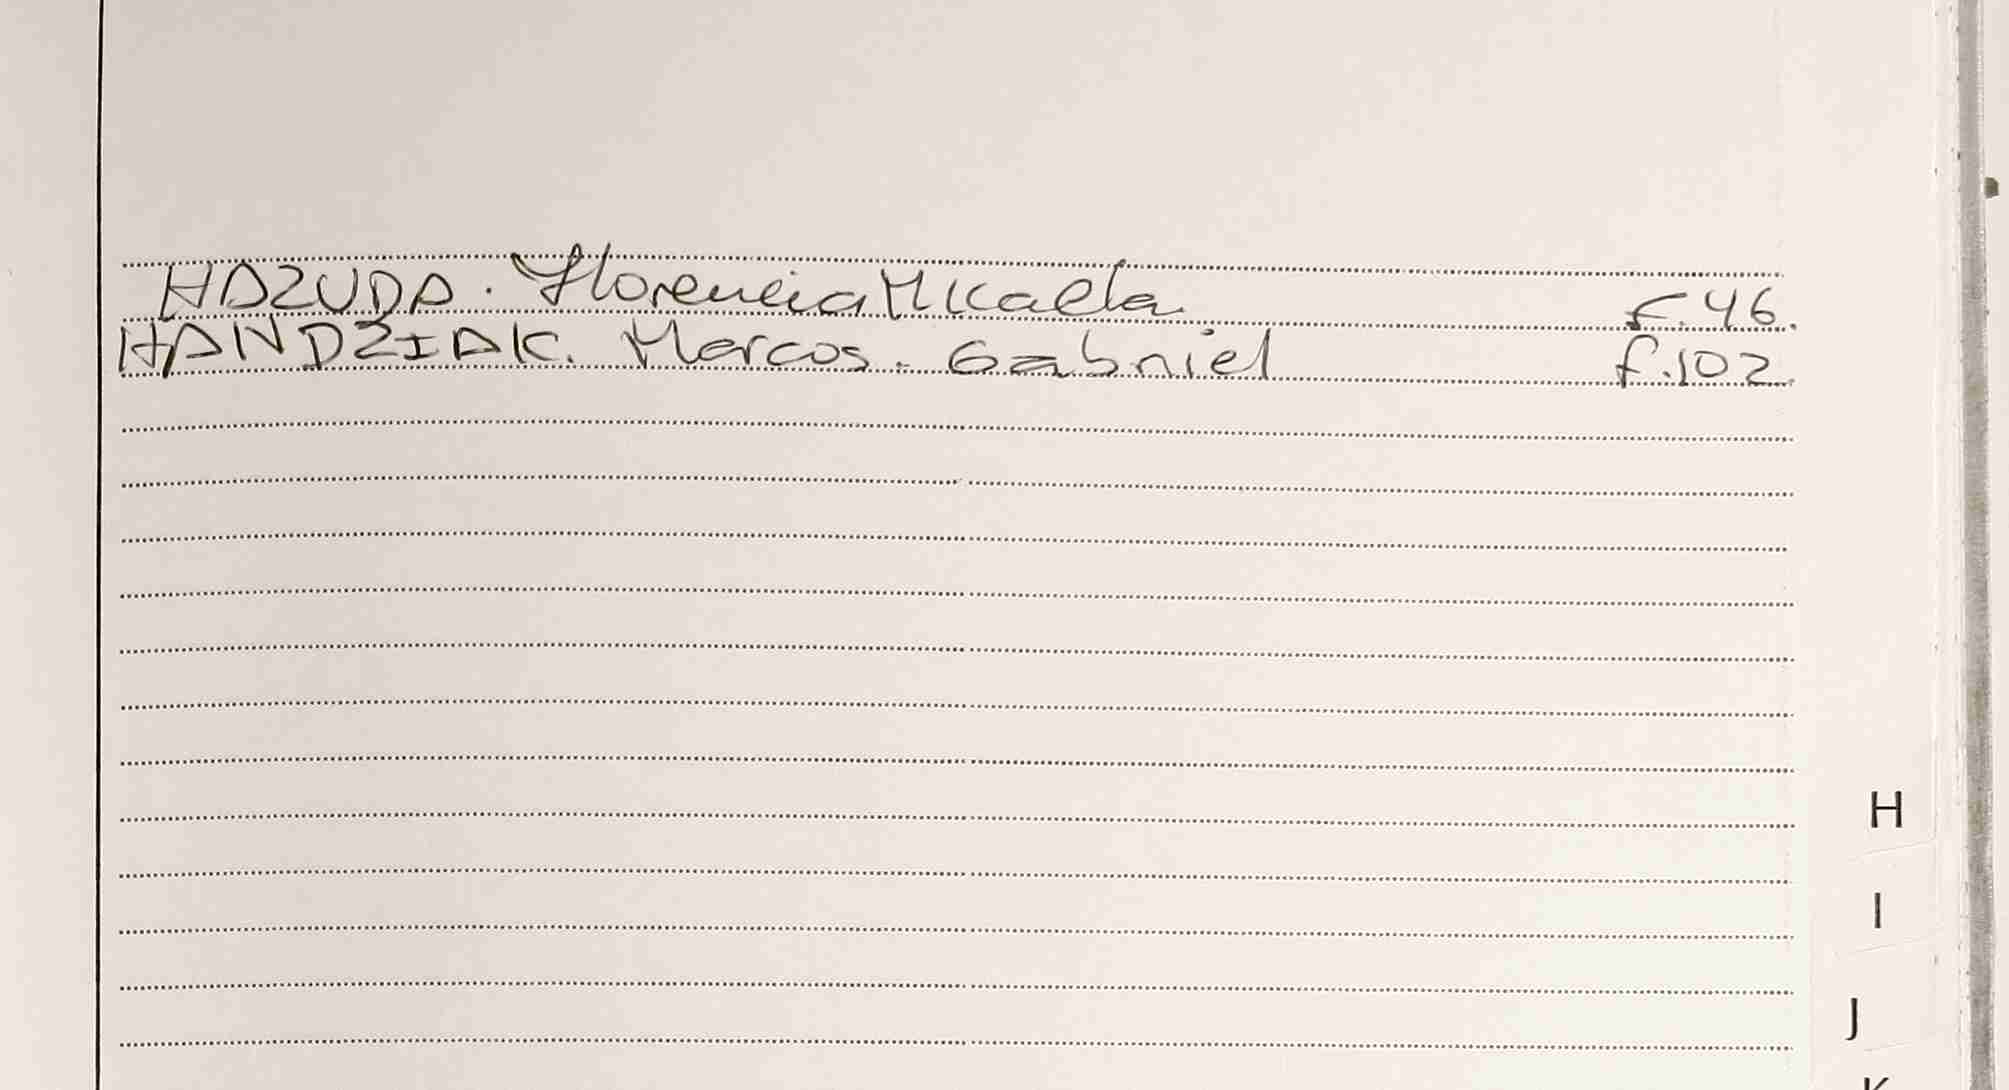 HAZUDA. Florencia Micaela f.46.
HANDZIAK. Marcos. Gabriel f.102
H
I
J
K